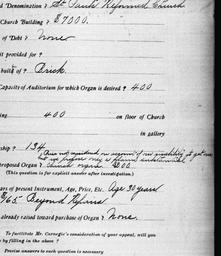 d Denomination? St Pauls Reformed Church
Church Building? $7000.
of Debt? None
it provided for?
built of? Brick
Capacity of Auditorium for which Organ is desired? 400
ing 400 on floor of Church
in gallery
ship? 134
proposed Organ? 1200.
(This question is for explicit answer after investigation.)
ars of present Instrument, Age, Price, Etc. Age 30 years
$165 Beyond Repairs
already raised toward purchase of Organ? None.
To facilitate Mr. Carnegie's consideration of your appeal, will you
by filling in the above?
Precise answers to each question is necessary